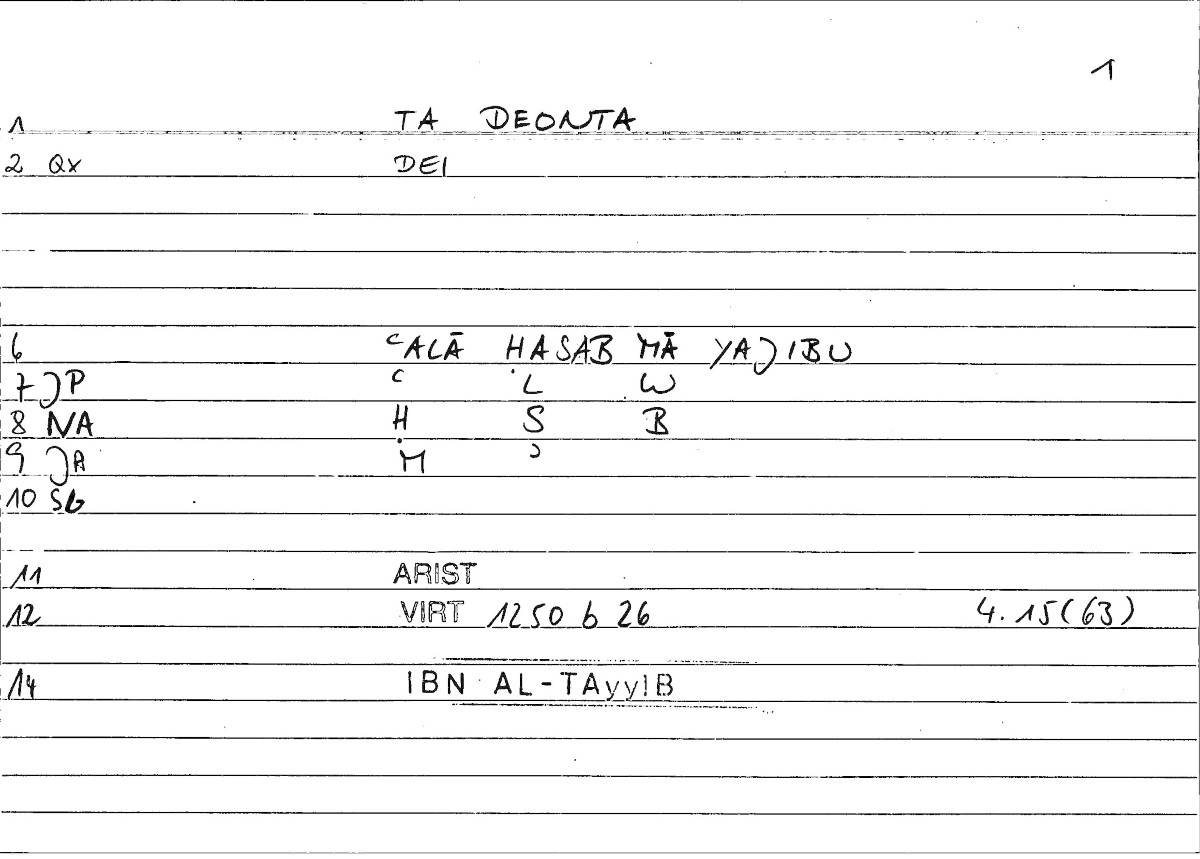 1
1 TA DEONTA
2 Qx DEI
6 ʿALĀ ḤASAB MĀ YAJIBU
7 JP ʿ L W
8 NA Ḥ S B
9 JA M ʾ
10 SG
11 ARIST
12 VIRT 1250 b 26 4.15(63)
14 IBN AL-TAyyIB